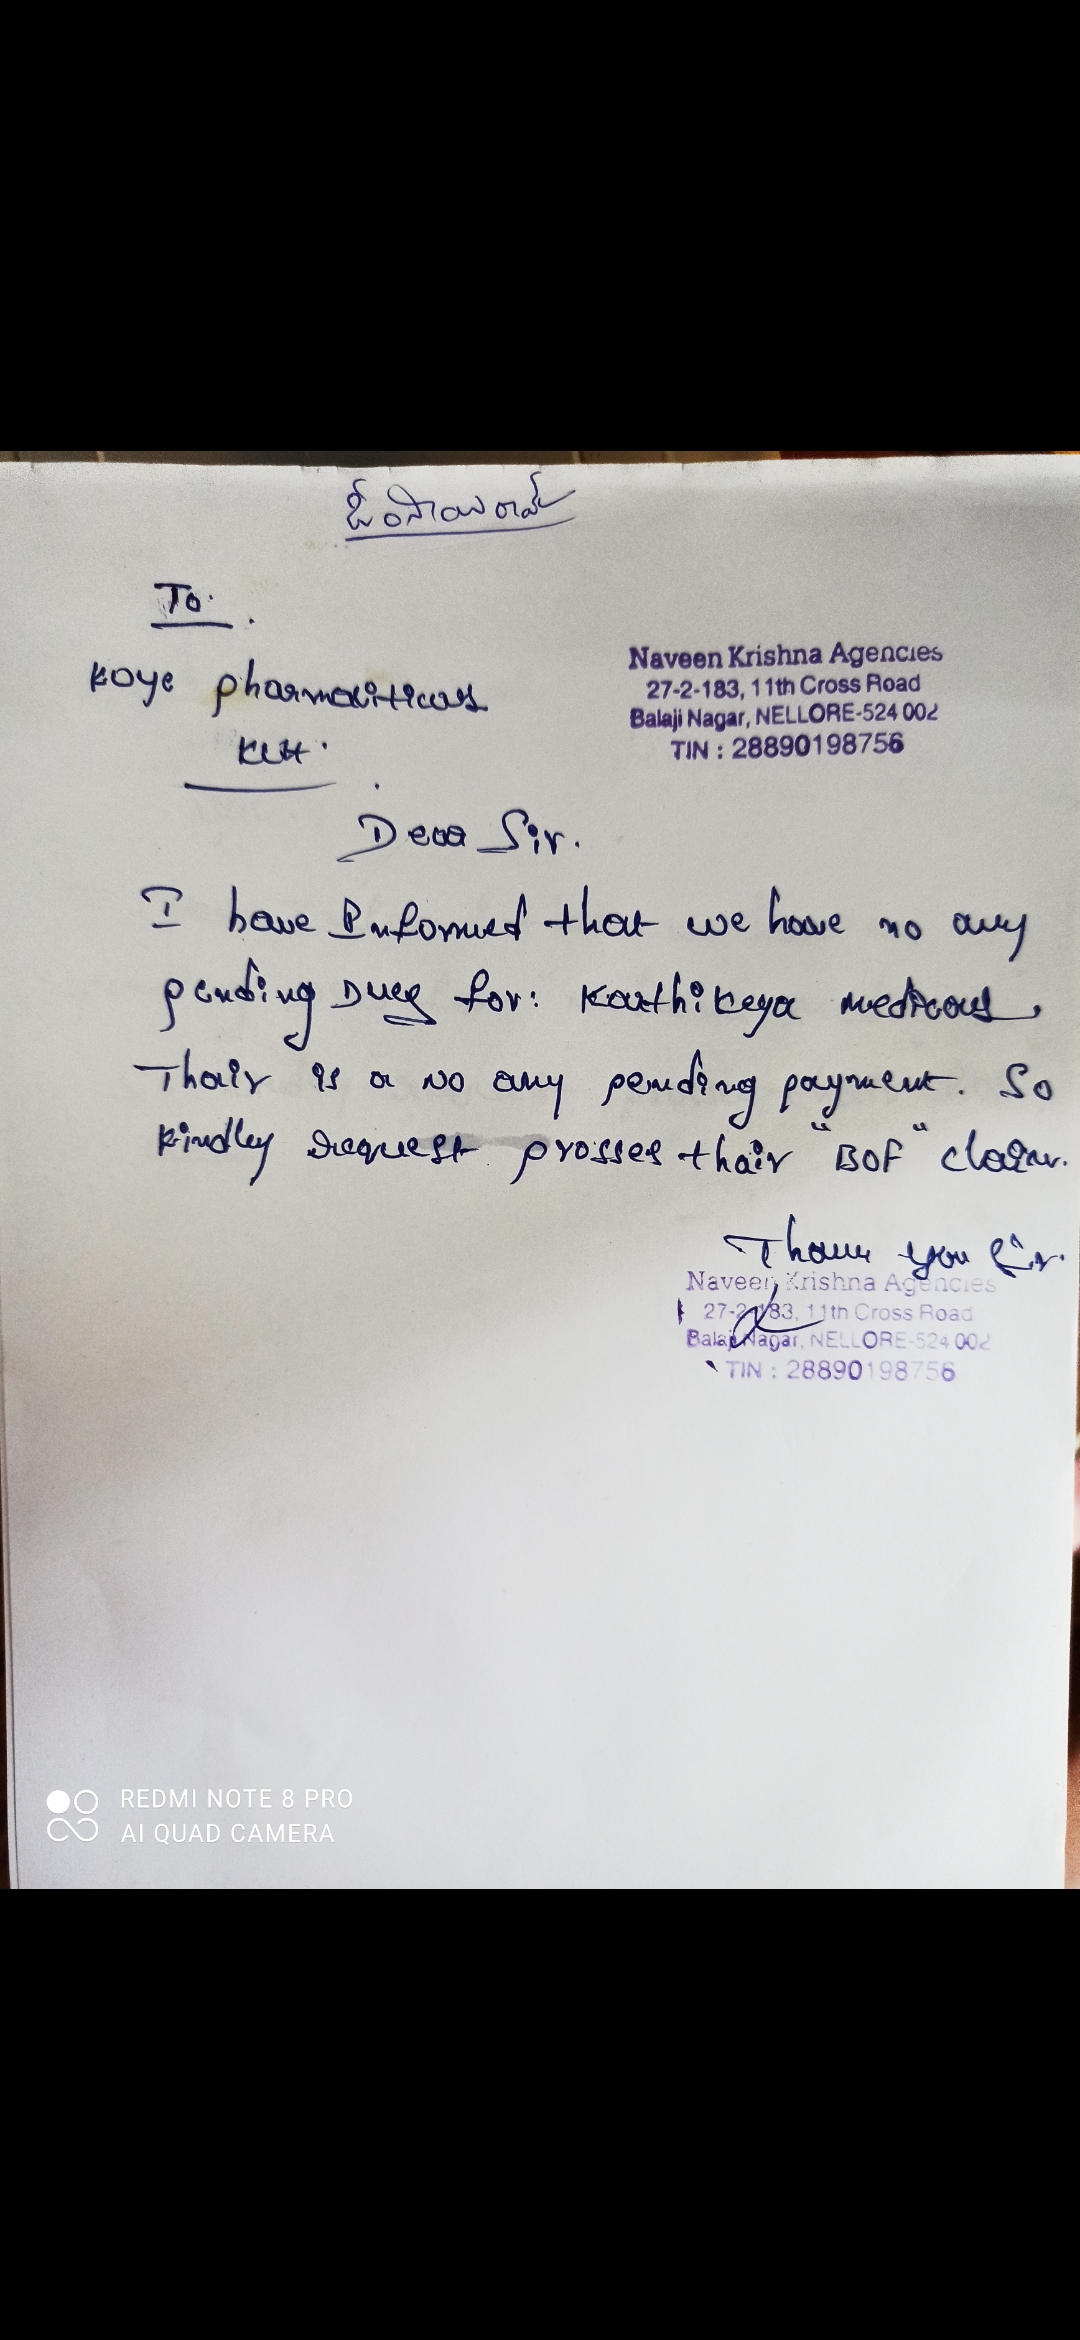 ఓం సాయి రామ్
To.
Naveen Krishna Agencies
27-2-183, 11th Cross Road
Balaji Nagar, NELLORE-524 002
TIN : 28890198756
Koye pharmaciticals
Dear Sir.
I have Informed that we have no any
pending Dues for: Karthikeya medicals.
Thair is a no any pending payment. So
kindley request prosses thair "BOF" claim.
Thank you Sir.
Naveen Krishna Agencies
27-2-183, 11th Cross Road
Balaji Nagar, NELLORE-524 002
TIN : 28890198756
REDMI NOTE 8 PRO
AI QUAD CAMERA